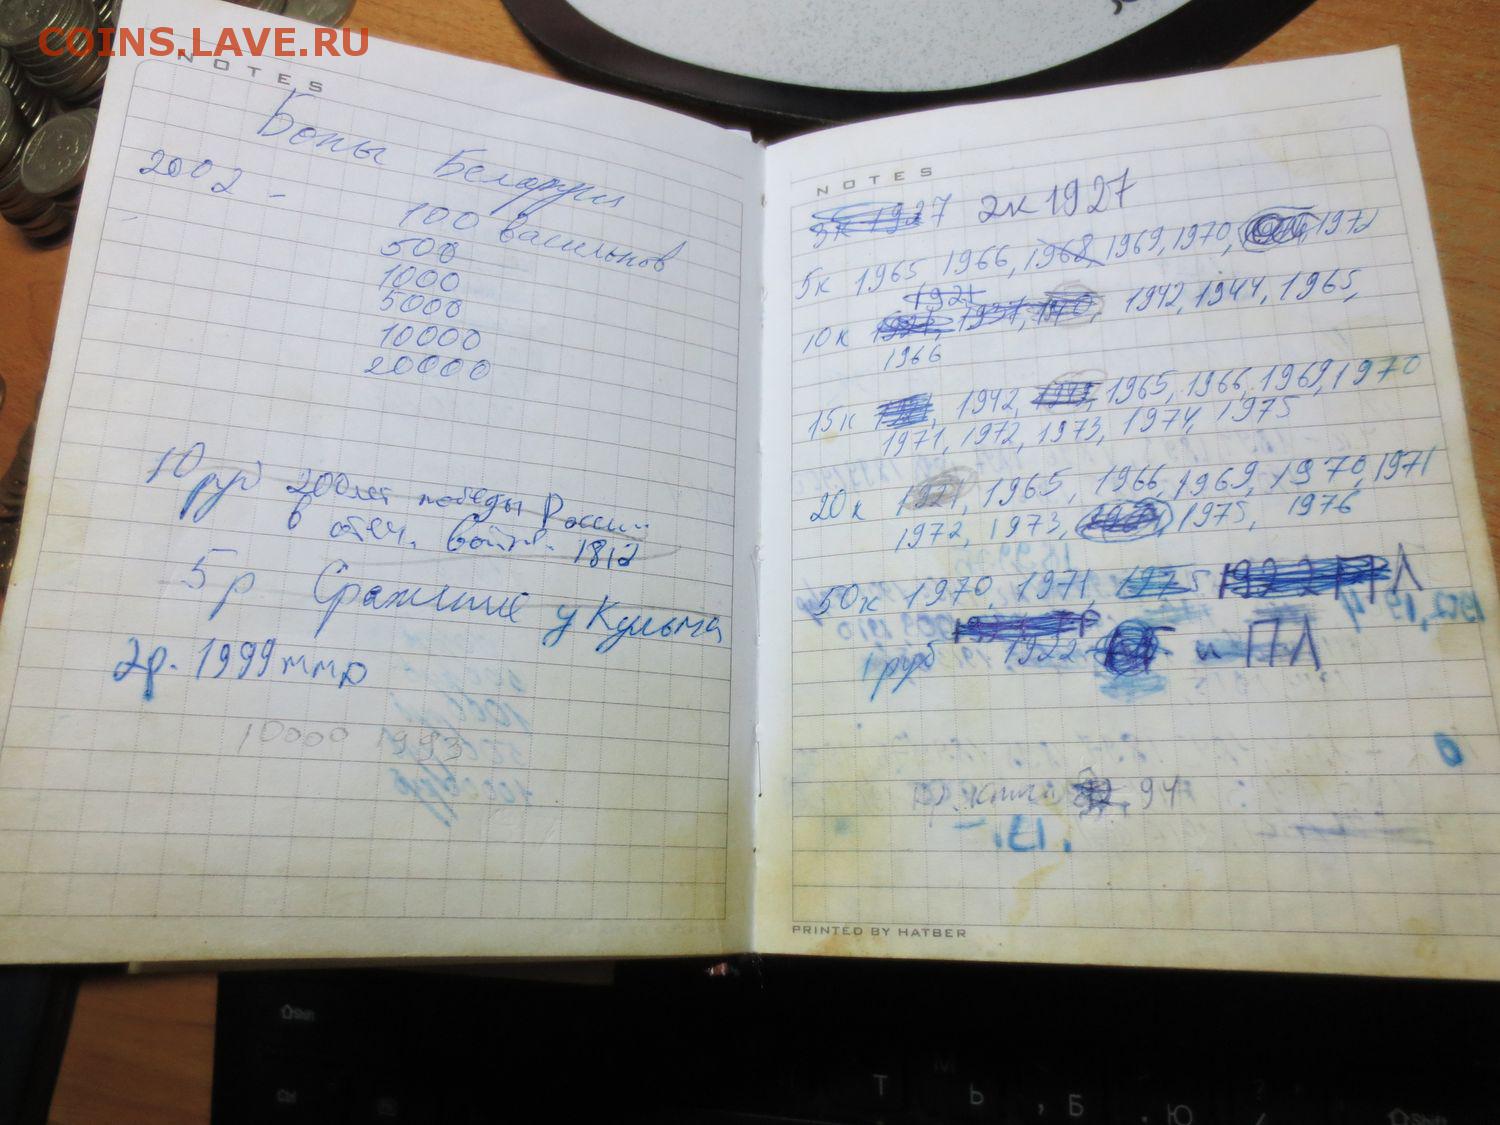 COINS.LAVE.RU
NOTES
Боны Беларуси
2002 - 100 васильков
500
1000
5000
10000
20000
10 руб 200 лет победы России
в отеч. войне 1812
5р Сражение у Кульма
2р. 1999 ммр
10000 1993
NOTES
3к 1927 2к 1927
5к 1965 1966, 1968, 1969, 1970, 1972
1921
10к 1921, 1937, 1942, 1944, 1965,
1966
15к 1942, 1965, 1966, 1969, 1970
1971, 1972, 1973, 1974, 1975
20к 1921, 1965, 1966, 1969, 1970, 1971
1972, 1973, 1975, 1976
50к 1970, 1971 1975 1922 ПЛ
1 руб 1922 и ПЛ
PRINTED BY HATBER
Shift
Т Ь , Б . Ю
Shift